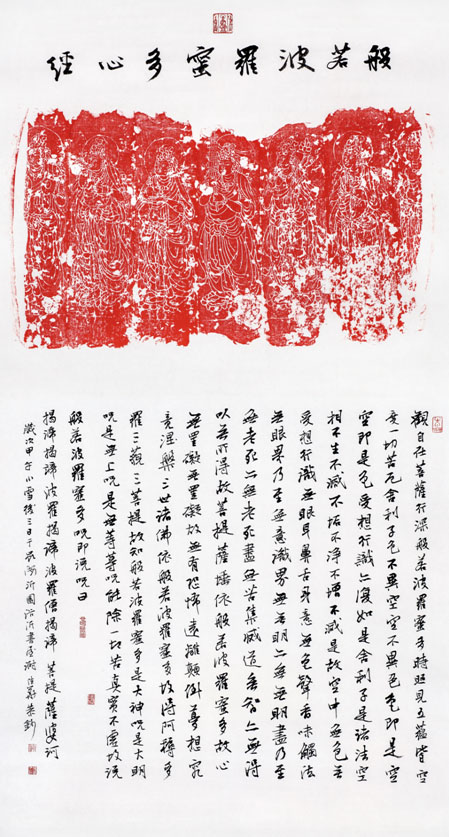 般若波羅蜜多心經
觀自在菩薩行深般若波羅蜜多時照見五蘊皆空
度一切苦厄舍利子色不異空空不異色色即是空
空即是色受想行識亦復如是舍利子是諸法空
相不生不滅不垢不淨不增不減是故空中無色無
受想行識無眼耳鼻舌身意無色聲香味觸法
無眼界乃至無意識界無無明亦無無明盡乃至
無老死亦無老死盡無苦集滅道無智亦無得
以無所得故菩提薩埵依般若波羅蜜多故心
無罣礙無罣礙故無有恐怖遠離顛倒夢想究
竟涅槃三世諸佛依般若波羅蜜多故得阿耨多
羅三藐三菩提故知般若波羅蜜多是大神咒是大明
咒是無上咒是無等等咒能除一切苦真實不虛故說
般若波羅蜜多咒即說咒曰
揭諦揭諦波羅揭諦波羅僧揭諦 菩提薩婆訶
歲次甲午小雪後三日于